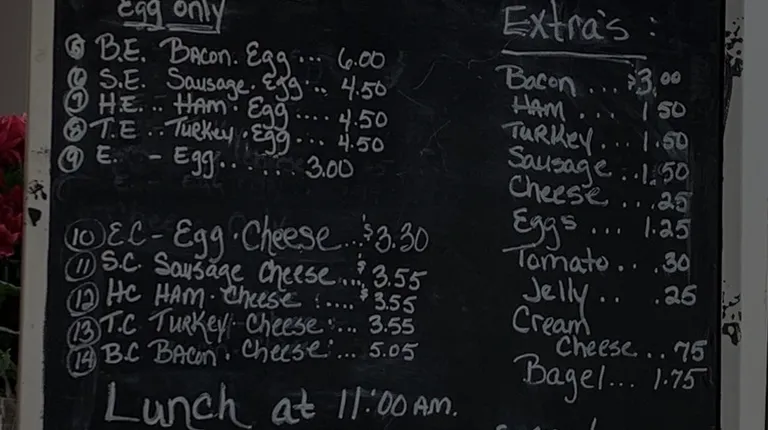 Egg only
5 B.E. Bacon. Egg ... 6.00
6 S.E. Sausage. Egg... 4.50
7 H.E... HAM. Egg .... 4.50
8 T.E .. Turkey. Egg .... 4.50
9 E. - Egg...... 3.00
10 E.C - Egg. Cheese ...$3.30
11 S.C Sausage Cheese....$3.55
12 HC HAM. Cheese ....$3.55
13 T.C Turkey. Cheese.... 3.55
14 B.C Bacon. Cheese.... 5.05
Lunch at 11:00 AM.
Extra's :
Bacon ... $3.00
HAM ... 1 50
TURKEY... 1.50
Sausage ..1.50
Cheese ... .25
Eggs ... 1.25
Tomato .. .30
Jelly .. .25
Cream
Cheese ...75
Bagel... 1.75